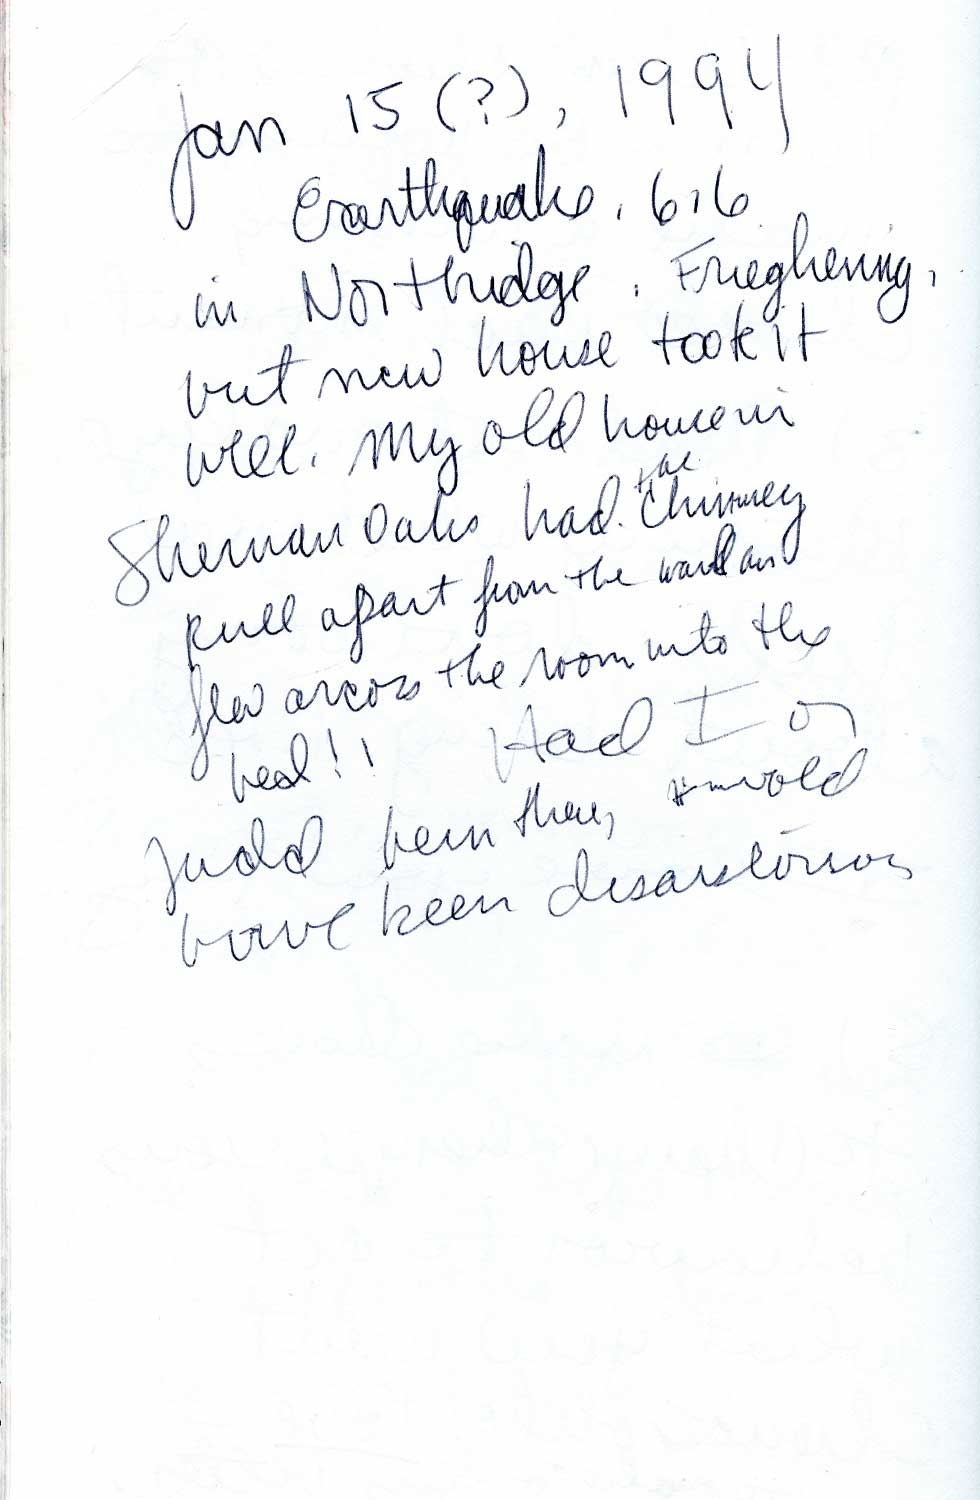 Jan 15 (?), 1994
Earthquake. 6.6
in Northridge. Frieghening,
but new house took it
well. My old house in
Sherman Oaks had the chimney
pull apart from the wall an
flew arcoss the room into the
bed!!  Had I or
Judd been there, it would
have been disarstorous